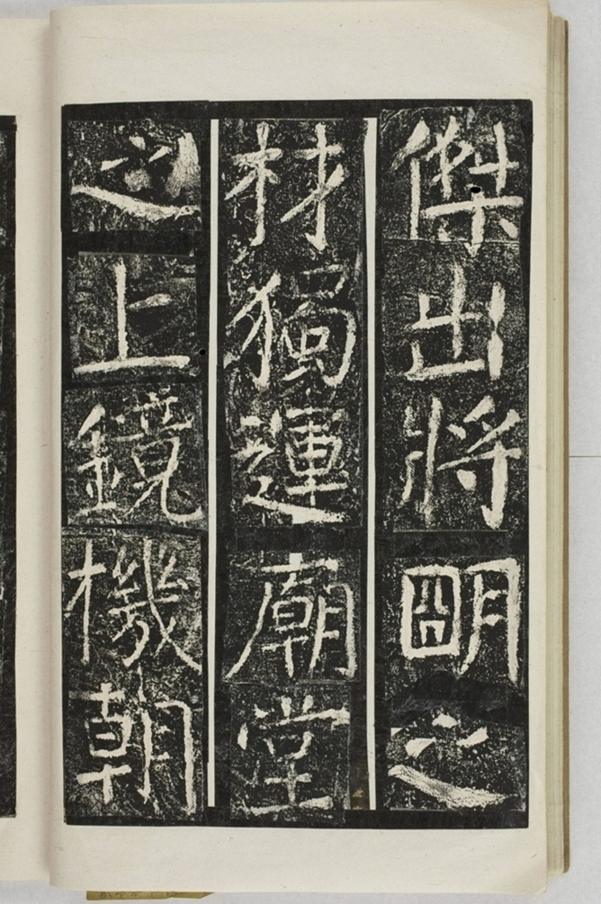 傑出將朙之
材獨運廟堂
之上鏡機朝